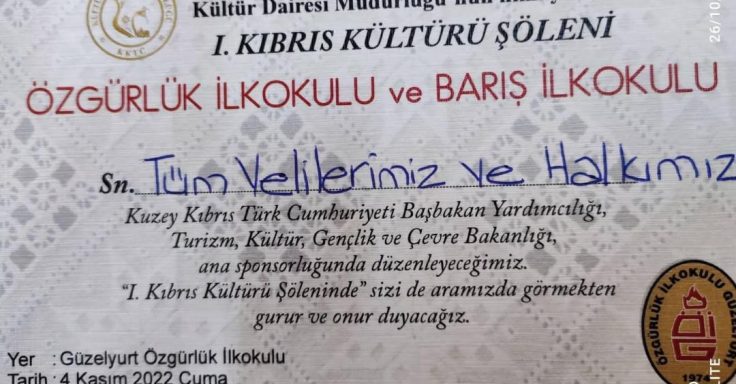 Kültür Dairesi Müdürlüğü'nün
I. KIBRIS KÜLTÜRÜ ŞÖLENİ
ÖZGÜRLÜK İLKOKULU ve BARIŞ İLKOKULU
Sn. Tüm Velilerimiz ve Halkımız
Kuzey Kıbrıs Türk Cumhuriyeti Başbakan Yardımcılığı,
Turizm, Kültür, Gençlik ve Çevre Bakanlığı,
ana sponsorluğunda düzenleyeceğimiz.
"I. Kıbrıs Kültürü Şöleninde" sizi de aramızda görmekten
gurur ve onur duyacağız.
Yer : Güzelyurt Özgürlük İlkokulu
Tarih : 4 Kasım 2022 Cuma
KKTC
ÖZGÜRLÜK İLKOKULU GÜZELYURT
1974
26/10
LITE